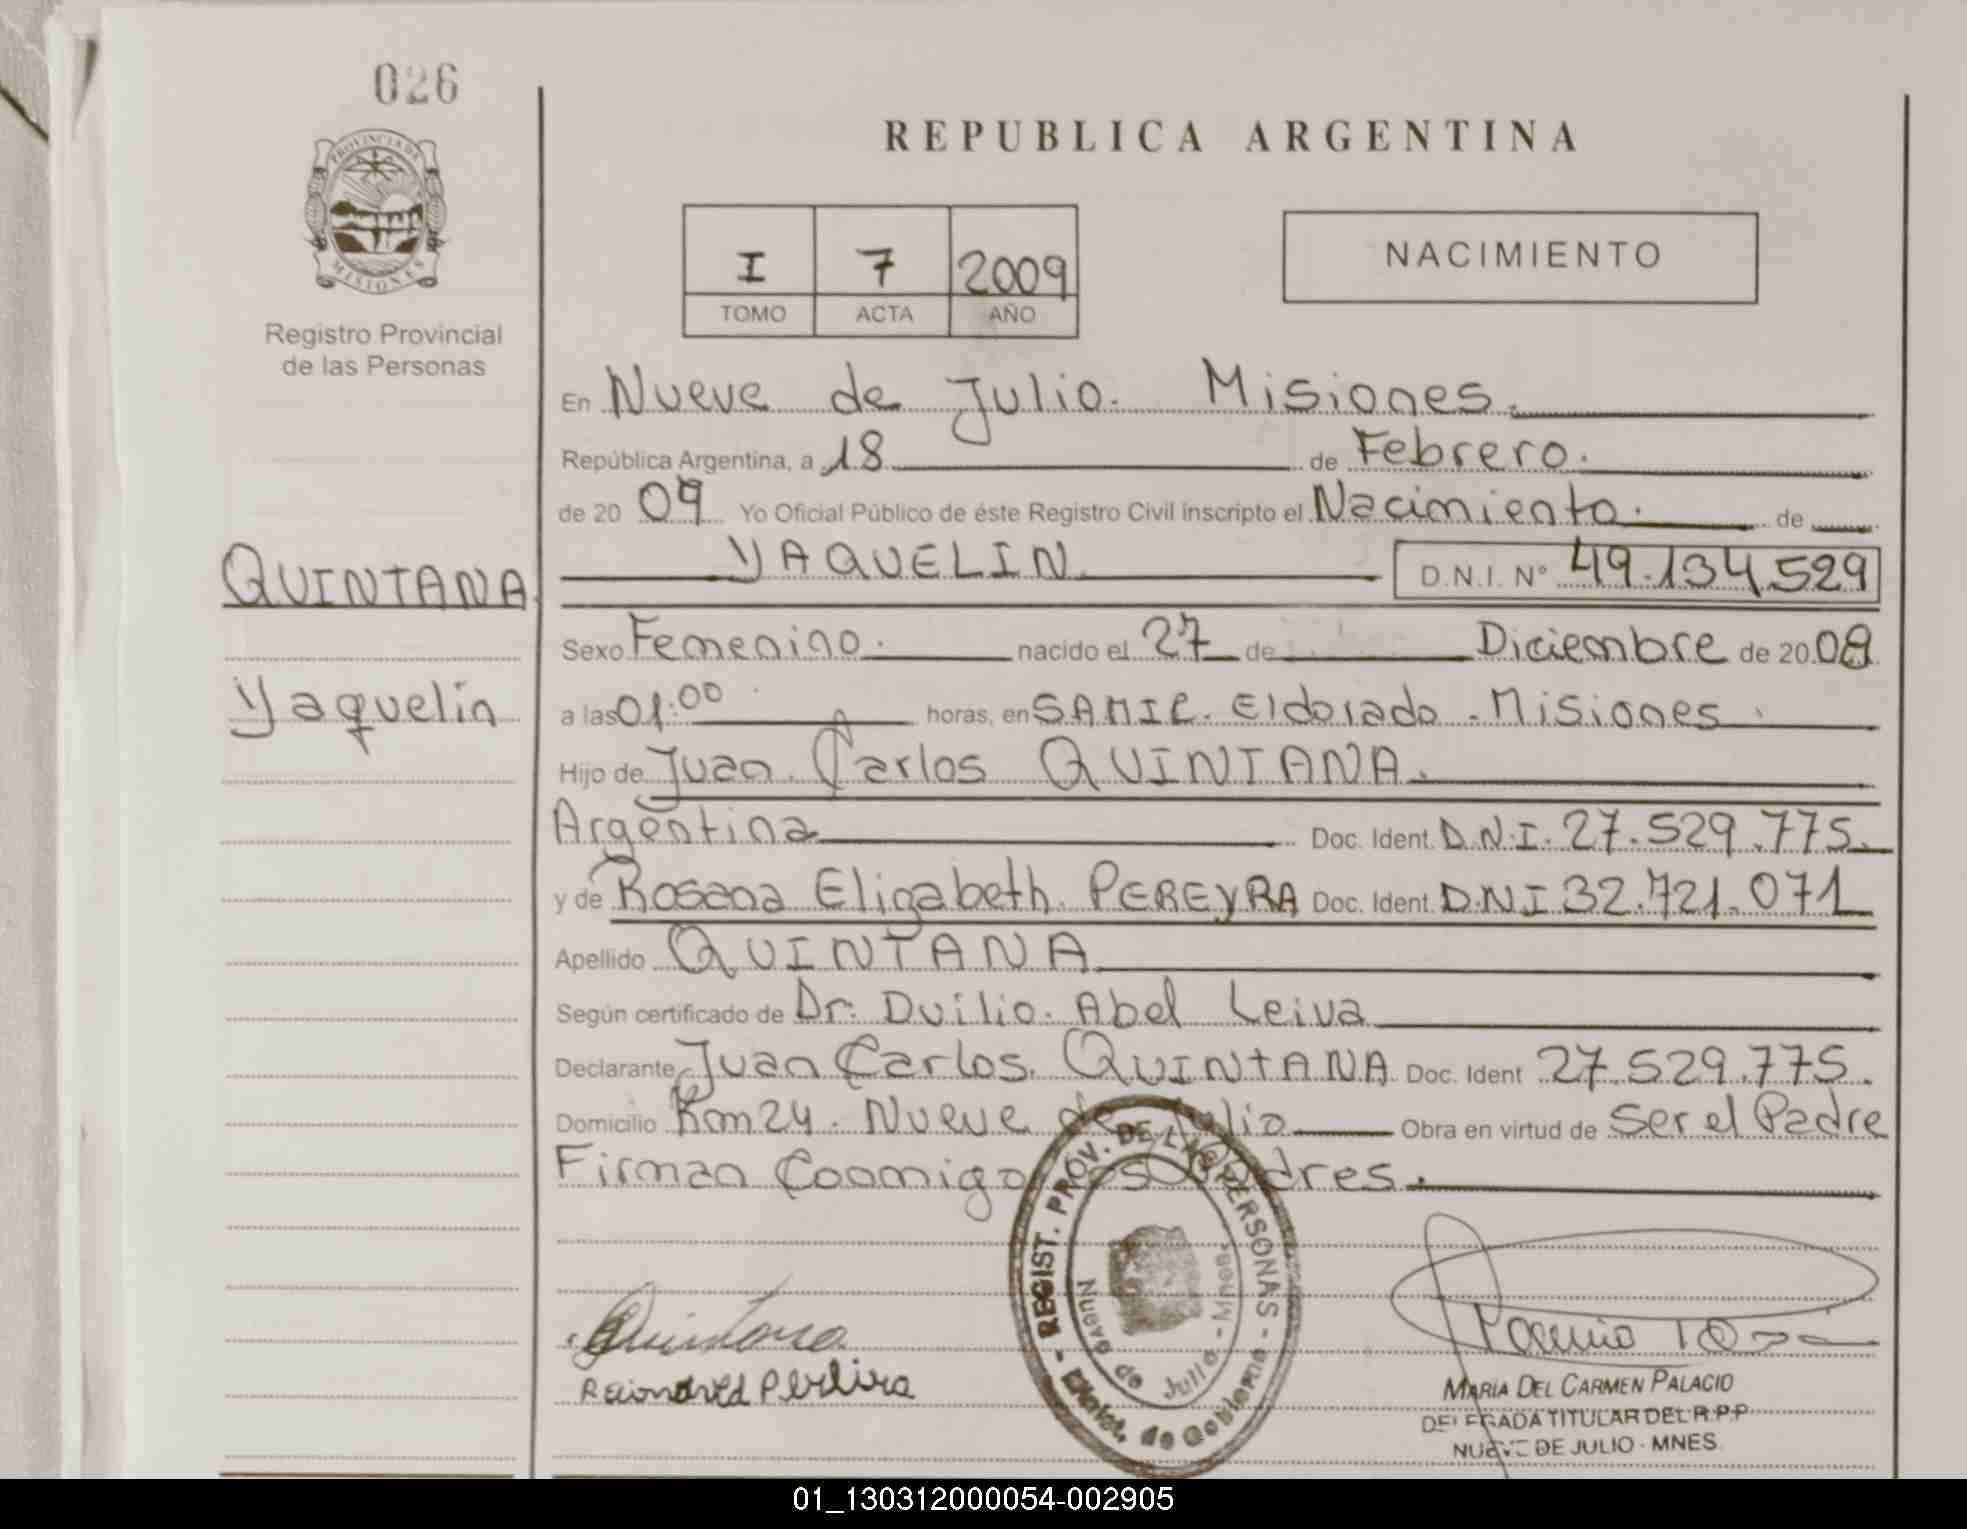 026
PROVINCIA DE
MISIONES
Registro Provincial
de las Personas
QUINTANA
Yaquelin
REPUBLICA ARGENTINA
I 7 2009
TOMO ACTA AÑO
NACIMIENTO
En Nueve de Julio. Misiones.
República Argentina, a 18 de Febrero.
de 20 09 Yo Oficial Público de éste Registro Civil inscripto el Nacimiento. de
YAQUELIN D.N.I. N° 49.134.529
Sexo Femenino. nacido el 27 de Diciembre de 20 08
a las 01:00 horas, en SAMIC. Eldorado - Misiones
Hijo de Juan Carlos QUINTANA.
Argentina Doc. Ident. D.N.I. 27.529.775.
y de Rosana Elizabeth PEREYRA Doc. Ident. D.N.I 32.721.071
Apellido QUINTANA
Según certificado de Dr. Duilio. Abel Leiva
Declarante Juan Carlos. QUINTANA Doc. Ident 27.529.775.
Domicilio Km 24. Nueve de Julio Obra en virtud de Ser el Padre
Firman Conmigo los Padres.
Quintana
REGIST. PROV. DE LAS PERSONAS - Minist. de Gobierno -
Nueve de Julio - Mnes.
MARIA DEL CARMEN PALACIO
DELEGADA TITULAR DEL R.P.P
NUEVE DE JULIO - MNES.
01_130312000054-002905